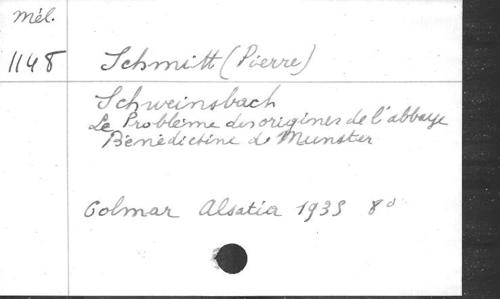 Mél.
1148
Schmitt (Pierre)
Schweinsbach
Le Problème des origines de l'abbaye
Bénédictine de Munster
Colmar Alsatia 1935 8°